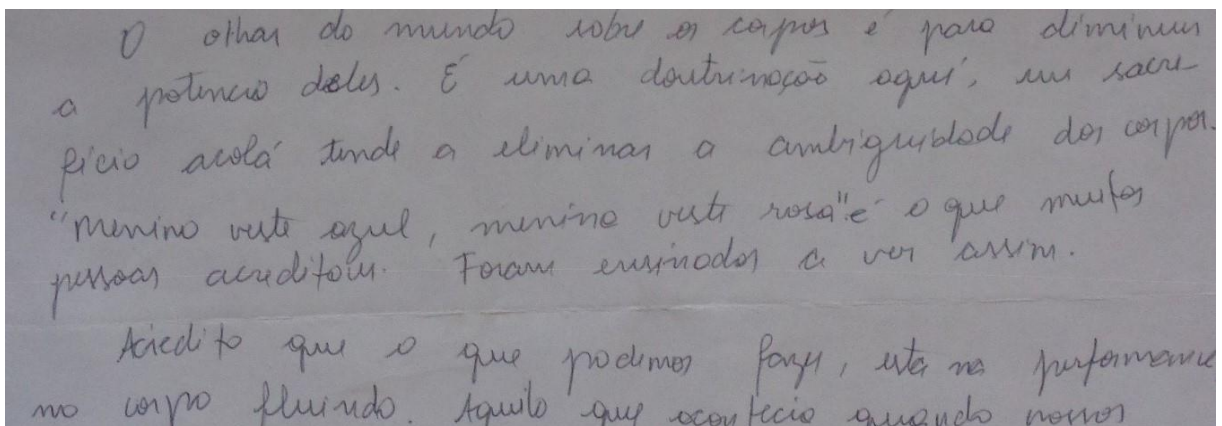 O olhar do mundo sobre os corpos é para diminuir
a potencia deles. É uma doutrinação aqui, um sacri-
fício acolá tende a eliminar a ambiguidade dos corpos.
"Menino veste azul, menina veste rosa" é o que muitas
pessoas acreditam. Foram ensinados a ver assim.
Acredito que o que podemos fazer, está na performance
no corpo fluindo. Aquilo que acontecia quando nossos